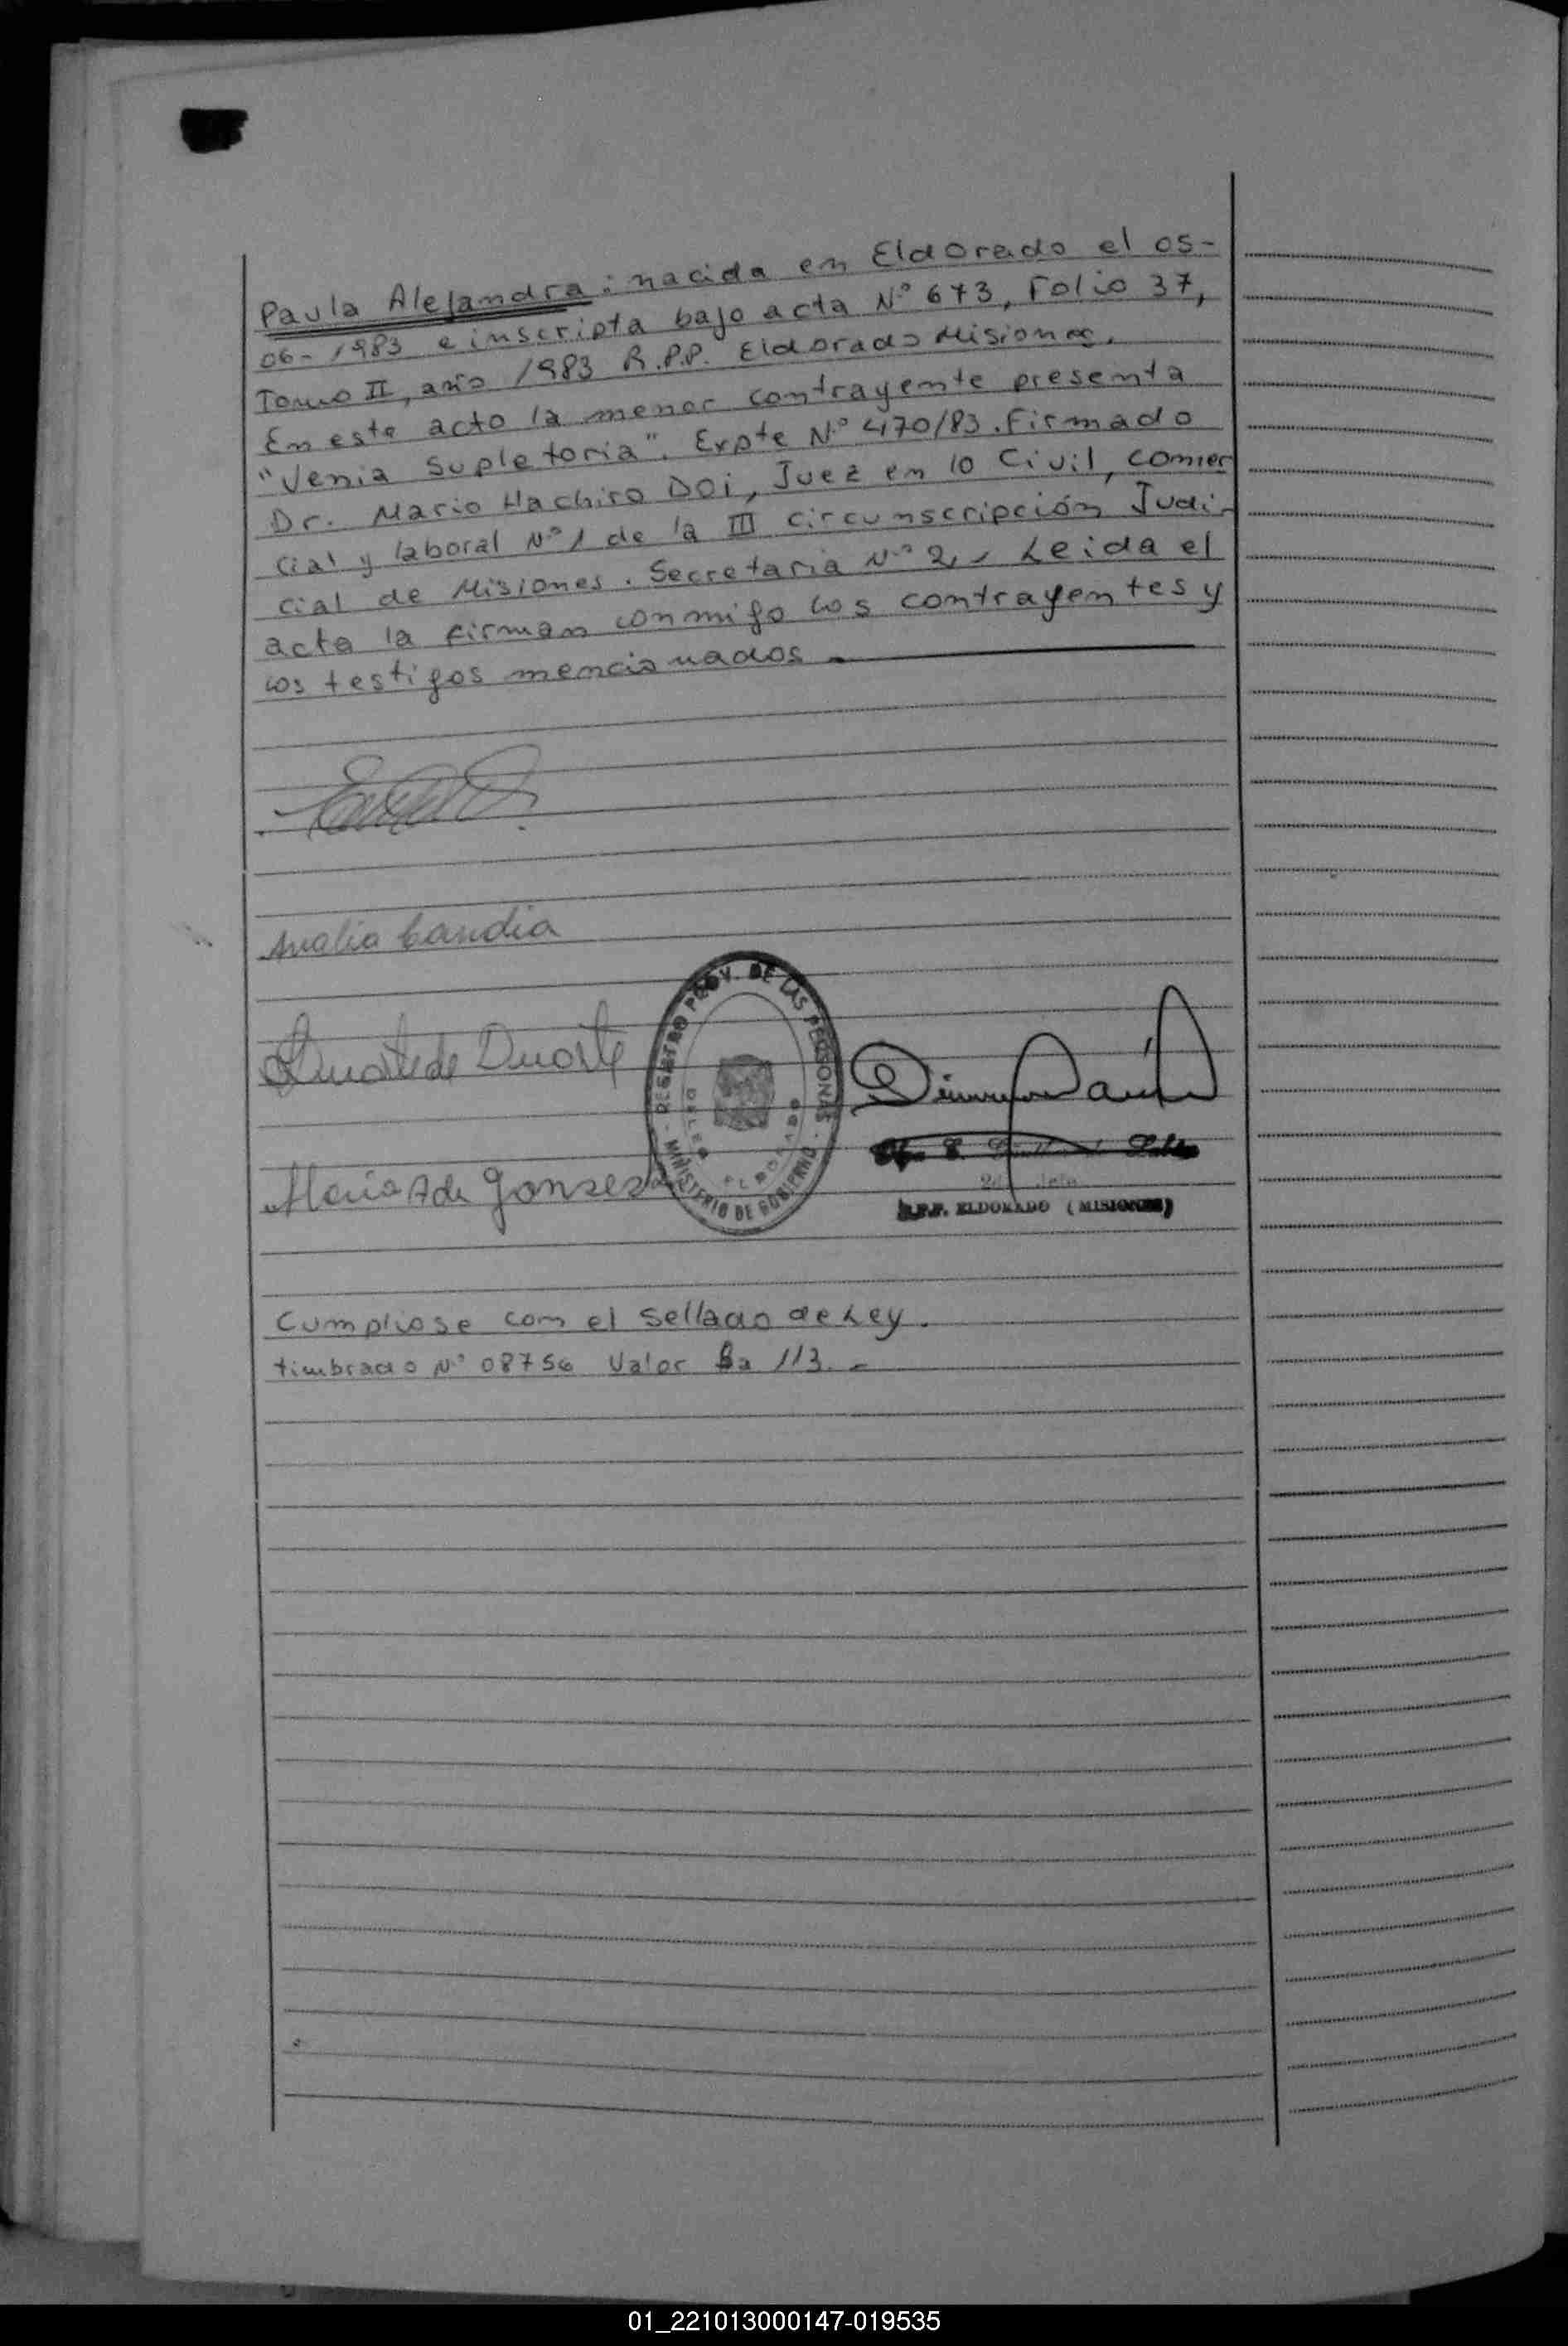 Paula Alejandra: nacida en Eldorado el 05-
06-1983 e inscripta bajo acta Nº 673, Folio 37,
Tomo II, año 1983 R.P.P. Eldorado Misiones.
En este acto la menor contrayente presenta
"Venia Supletoria". Expte Nº 470/83. Firmado
Dr. Mario Hachiro Doi, Juez en lo Civil, comer
cial y laboral Nº 1 de la III circunscripción Judi-
cial de Misiones. Secretaria Nº 2,- Leida el
acta la firman conmigo los contrayentes y
los testigos mencionados.
Analia Candia
de Duarte
REGISTRO PROV. DE LAS PERSONAS
ELDORADO
MINISTERIO DE GOBIERNO
Maria A de Gonsez
R.P.P. ELDORADO (MISIONES)
Cumpliose con el sellado de Ley.
timbrado Nº 08756 Valor $a 113.-
01_221013000147-019535